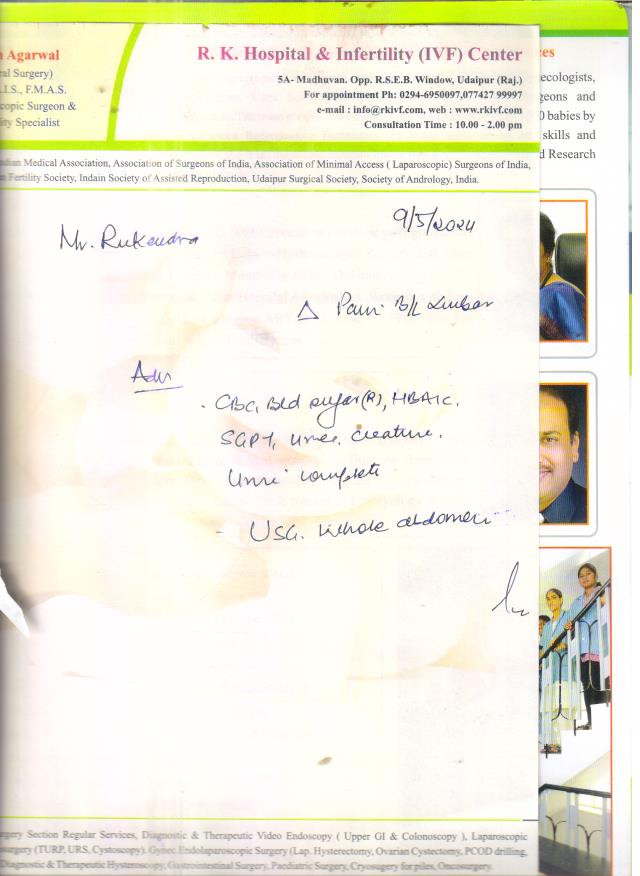 Agarwal
al Surgery)
.I.S., F.M.A.S.
copic Surgeon &
ity Specialist
R. K. Hospital & Infertility (IVF) Center
5A- Madhuvan. Opp. R.S.E.B. Window, Udaipur (Raj.)
For appointment Ph: 0294-6950097,077427 99997
e-mail : info@rkivf.com, web : www.rkivf.com
Consultation Time : 10.00 - 2.00 pm
ndian Medical Association, Association of Surgeons of India, Association of Minimal Access ( Laparoscopic) Surgeons of India,
n Fertility Society, Indain Society of Assisted Reproduction, Udaipur Surgical Society, Society of Andrology, India.
ces
ecologists,
geons and
0 babies by
skills and
d Research
9/5/2024
Mr. Rukendra
Δ Pain B/L Lumbar
Adv
- CBC, Bld sugar(R), HBA1C,
SGPT, Urea, Creatine,
Urine complete
- USG. Whole abdomen
rgery Section Regular Services, Diagnostic & Therapeutic Video Endoscopy ( Upper GI & Colonoscopy ), Laparoscopic
surgery (TURP, URS, Cystoscopy). Gynec Endolaparoscopic Surgery (Lap. Hysterectomy, Ovarian Cystectomy, PCOD drilling,
Diagnostic & Therapeutic Hysteroscopy, Gastrointestinal Surgery, Paediatric Surgery, Cryosugery for piles, Oncosurgery.